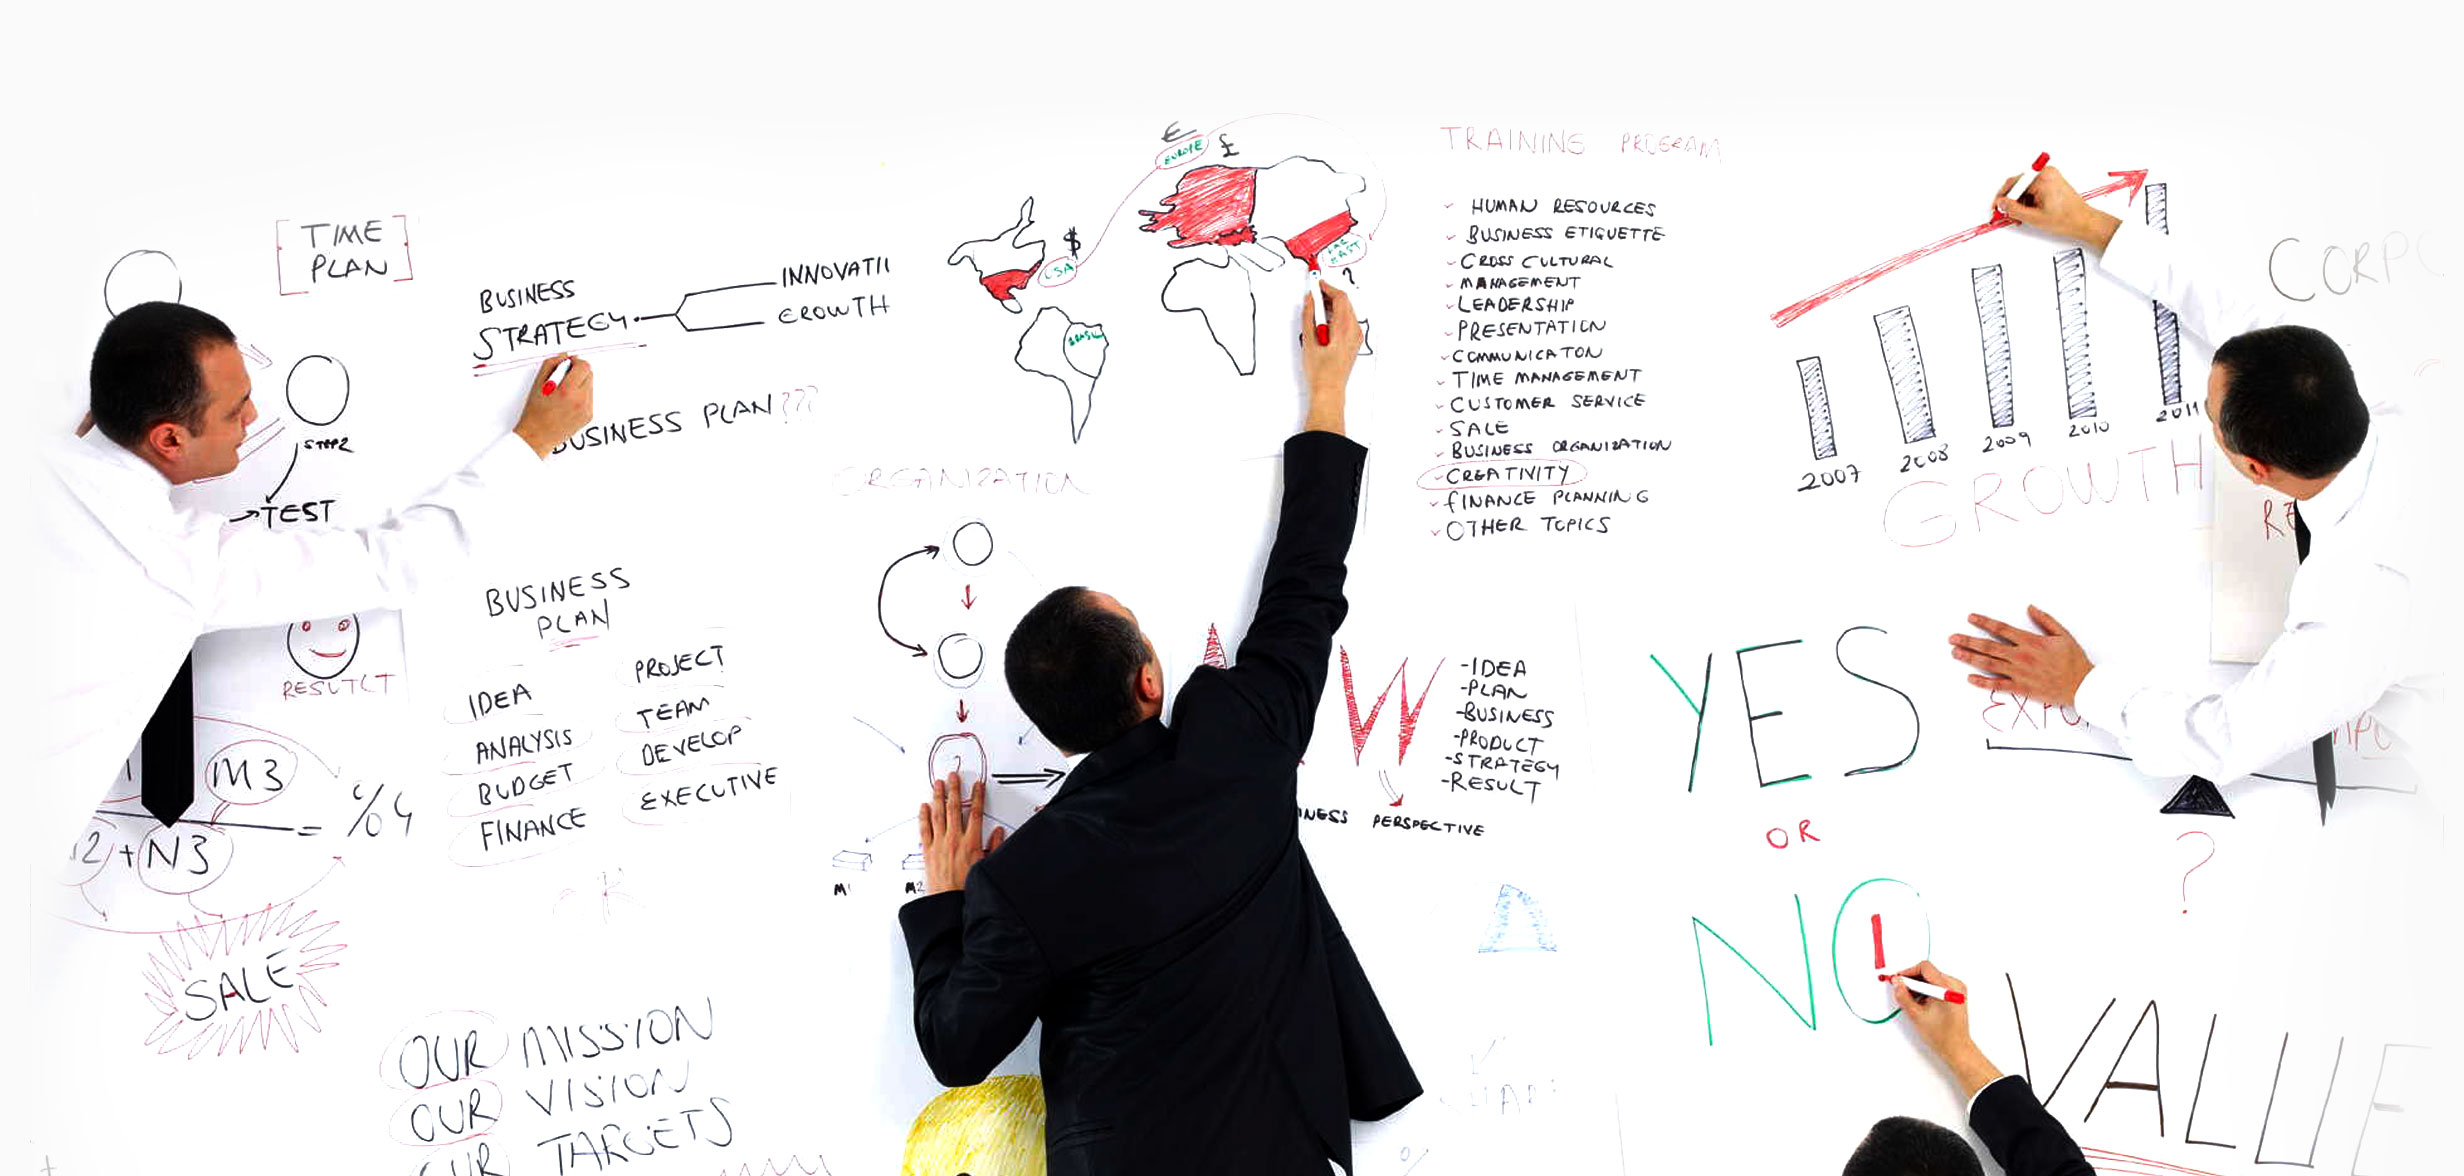 TIME
PLAN
STEP2
TEST
RESULCT
M3
N3
= %
SALE
BUSINESS
STRATEGY
INNOVATI
GROWTH
BUSINESS PLAN???
BUSINESS
PLAN
IDEA
ANALYSIS
BUDGET
FINANCE
PROJECT
TEAM
DEVELOP
EXECUTIVE
OK
OUR MISSION
OUR VISION
OUR TARGETS
ORGANIZATION
M1
M2
€
EUROPE
£
$
USA
BRASIL
?
TRAINING PROGRAM
HUMAN RESOURCES
BUSINESS ETIQUETTE
CROSS CULTURAL
MANAGEMENT
LEADERSHIP
PRESENTATION
COMMUNICATON
TIME MANAGEMENT
CUSTOMER SERVICE
SALE
BUSINESS ORGANIZATION
CREATIVITY
FINANCE PLANNING
OTHER TOPICS
W
-IDEA
-PLAN
-BUSINESS
-PRODUCT
-STRATEGY
-RESULT
INESS PERSPECTIVE
2007
2008
2009
2010
2011
GROWTH
CORP
YES
OR
NO
!
?
VALUE